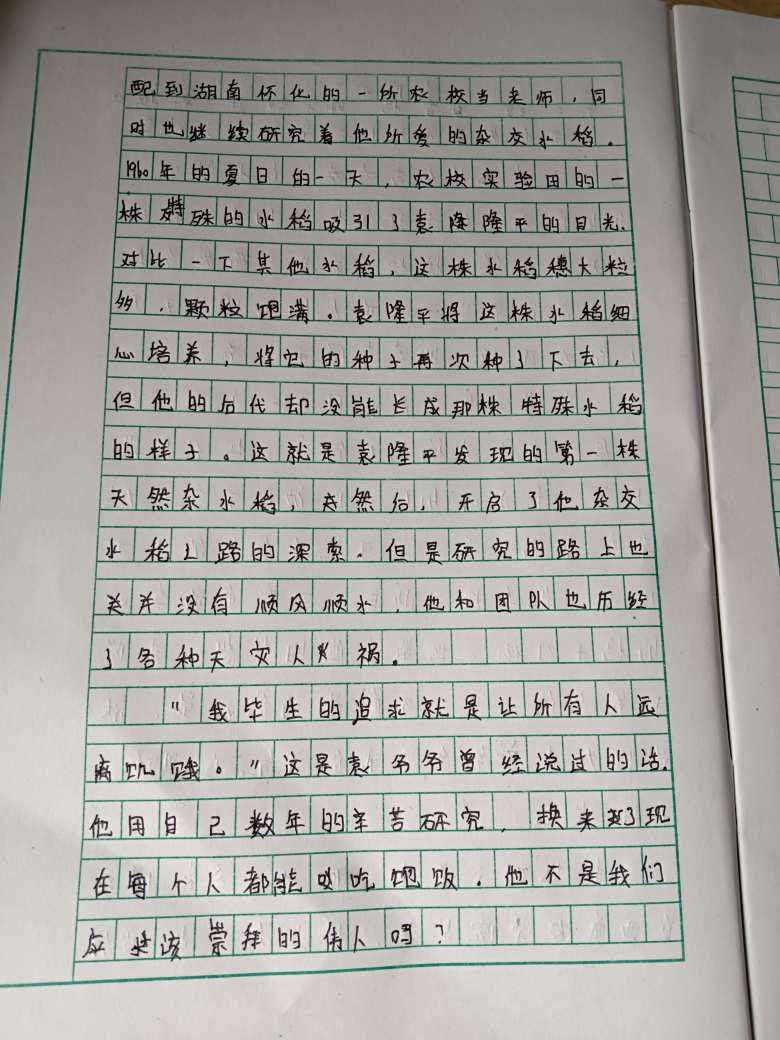 配到湖南怀化的一所农校当老师，同
时也继续研究着他所爱的杂交水稻。
1960年的夏日的一天，农校实验田的一
株特殊的水稻吸引了袁隆平的目光。
对比一下其他水稻，这株水稻穗大粒
多，颗粒饱满。袁隆平将这株水稻细
心培养，将它的种子再次种了下去，
但他的后代却没能长成那株特殊水稻
的样子。这就是袁隆平发现的第一株
天然杂水稻，然后，开启了他杂交
水稻上路的深索。但是研究的路上也
并没有顺风顺水，他和团队也历经
了各种天灾人祸。
"我毕生的追求就是让所有人远
离饥饿。"这是袁爷爷曾经说过的话。
他用自己数年的辛苦研究，换来了现
在每个人都能吃饱饭。他不是我们
应该崇拜的伟人吗？